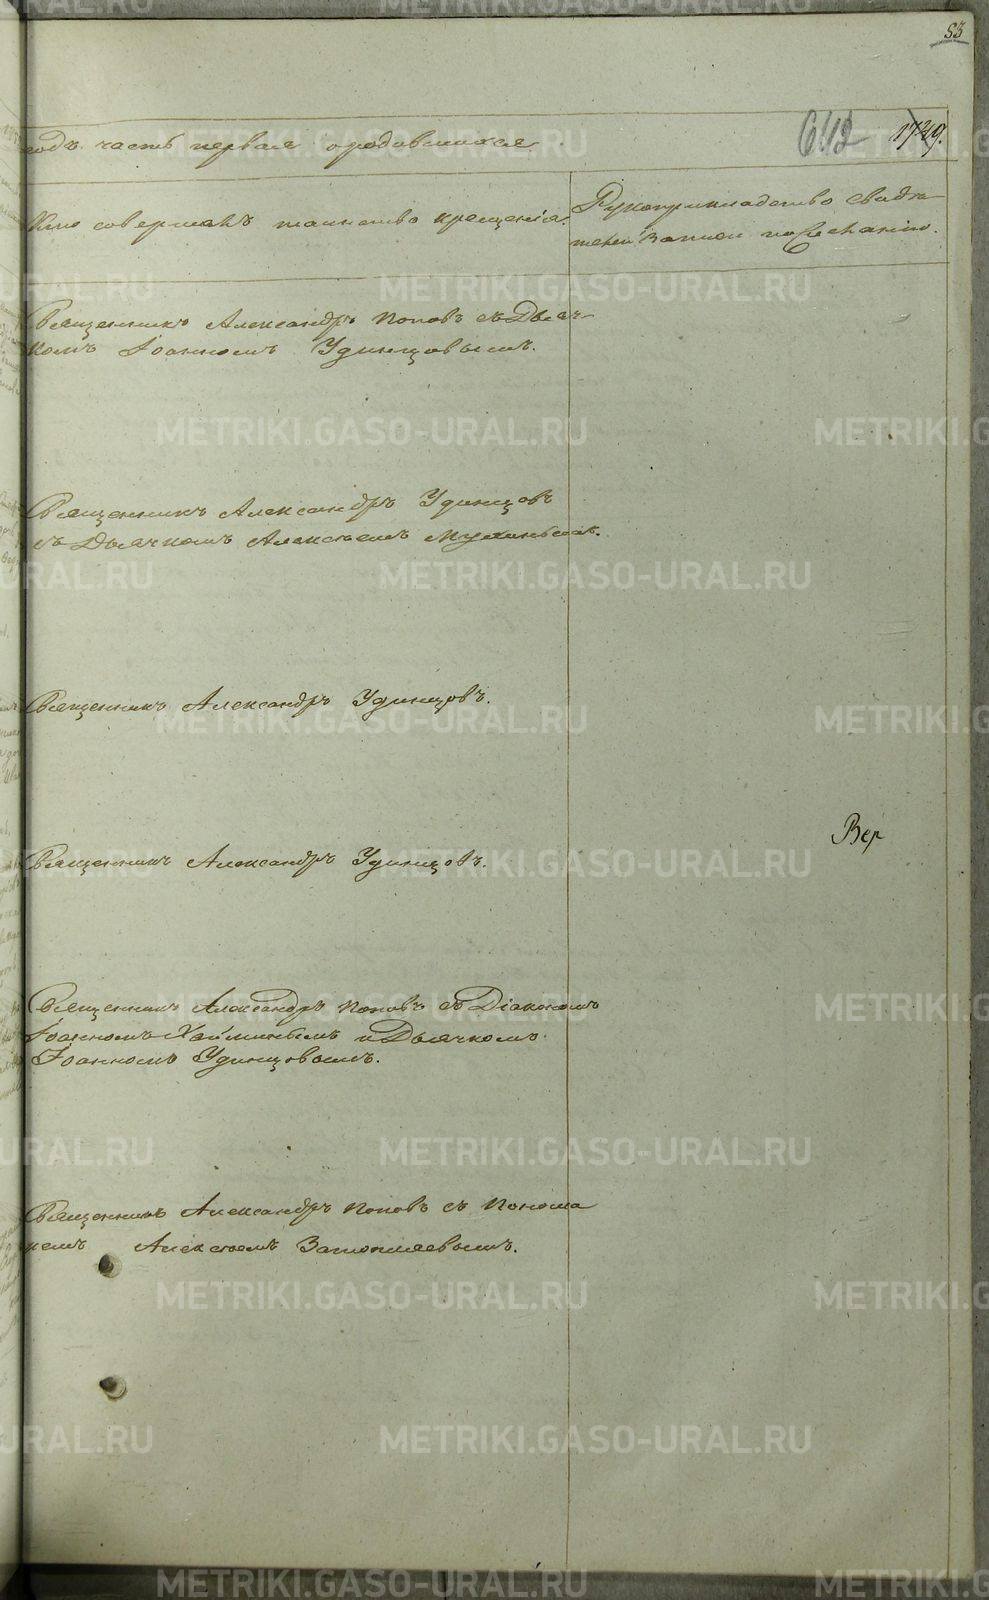 83
годъ часть первая о родившихся
642 1739.
Кто совершалъ таинство крещенiя.
Рукоприкладство свидѣ-
телей записи по желанію.
Священникъ Александръ Поповъ съ Дьяч-
комъ Іоанномъ Удинцовымъ.
Священникъ Александръ Удинцовъ
съ Дьячкомъ Алексѣемъ Мухинымъ.
Священникъ Александръ Удинцовъ.
Вер
Священникъ Александръ Удинцовъ.
Священникъ Александръ Поповъ съ Діакономъ
Іоанномъ Хайминымъ и Дьячкомъ
Іоанномъ Удинцовымъ.
Священникъ Александръ Поповъ съ Понома
ремъ Алексѣемъ Затопляевымъ.
METRIKI.GASO-URAL.RU